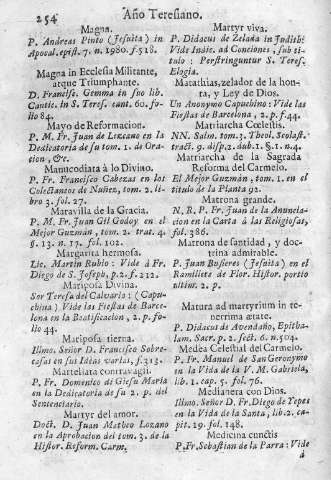 254 Año Teresiano.
Magna.
P. Andreas Pinto (Jesuita) in
Apocal. epist. 7. n. 1980. f. 518.
Magna in Ecclesia Militante,
atque Triumphante.
D. Francisc. Gemma in suo lib.
Cantic. in S. Teres. cant. 60. fo-
lio 84.
Mayo de Reformacion.
P. M. Fr. Juan de Lezano en la
Dedicatoria de su tom. 1. de Ora-
cion, &c.
Manucodiata à lo Divino.
P. Fr. Francisco Cabezas en los
Colectaneos de Nuñen, tom. 2. li-
bro 3. fol. 27.
Maravilla de la Gracia.
P. M. Fr. Juan Gil Godoy en el
Mejor Guzmán, tom. 2. trat. 4.
§. 13. n. 17. fol. 102.
Margarita hermosa.
Lic. Martin Rubio: Vide à Fr.
Diego de S. Joseph, p. 2. f. 212.
Mariposa Divina.
Sor Teresa del Calvario: (Capu-
china) Vide las Fiestas de Barce-
lona en la Beatificacion, 2. p. fo-
lio 44.
Mariposa tierna.
Illmo. Señor D. Francisco Sobre-
casas en sus Ideas varias, f. 313.
Martellata contra vagii.
P. Fr. Domenico di Giesu Maria
en la Dedicatoria de su 2. p. del
Sentenciario.
Martyr del amor.
Doct. D. Juan Matheo Lozano
en la Aprobacion del tom. 3. de la
Histor. Reform. Carm.
Martyr viva.
P. Didacus de Zelada in Judith:
Vide Indic. ad Conciones, sub ti-
tulo: Perstringuntur S. Teres.
Elogia.
Matathias, zelador de la hon-
ra, y Ley de Dios.
Un Anonymo Capuchino: Vide las
Fiestas de Barcelona, 2. p. f. 44.
Matriarcha Cœlestis.
NN. Salm. tom. 3. Theol. Scolast.
tract. 9. disp. 2. dub. 1. §. 1. n. 4.
Matriarcha de la Sagrada
Reforma del Carmelo.
El Mejor Guzmán, tom. 1. en el
titulo de la Planta 92.
Matrona grande.
N. R. P. Fr. Juan de la Anuncia-
cion en la Carta à las Religiosas,
fol. 386.
Matrona de santidad, y doc-
trina admirable.
P. Juan Busieres (Jesuita) en el
Ramillete de Flor. Histor. portio
ultim. 2. p.
Matura ad martyrium in te-
nerrima ætate.
P. Didacus de Avendaño, Epitha-
lam. Sacr. p. 2. sect. 6. n. 504.
Medea Celestial del Carmelo.
P. Fr. Manuel de San Geronymo
en la Vida de la V. M. Gabriela,
lib. 1. cap. 5. fol. 76.
Medianera con Dios.
Illmo. Señor D. Fr. Diego de Yepes
en la Vida de la Santa, lib. 2. ca-
pit. 29. fol. 148.
Medicina cunctis
P. Fr. Sebastian de la Parra: Vide
à